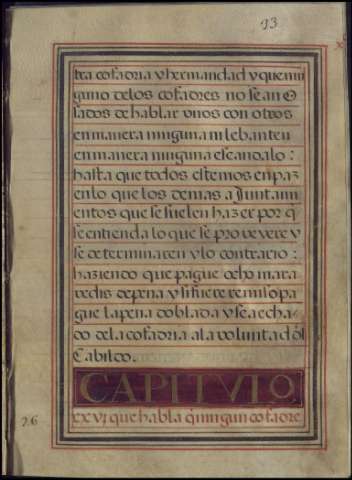 13
tra cofadria y hermandad y que nin
guno delos cofadres no sean o
sados de hablar vnos con otros
en manera ninguna ni lebanten
en manera ninguna escandalo:
hasta que todos estemos en paz
en lo que los demas a Juntami
entos que se suelen hazer por q̃
se entienda lo que se provevere y
se determinaren y lo contrario:
haziendo que pague ocho mara
vedis de pena y si fuere remiso pa
gue la pena doblada y sea echa
do dela cofadria a la voluntad d̃l
Cabildo.
CAPITVLO
26
xxvj que habla q̃ ningun cofadre